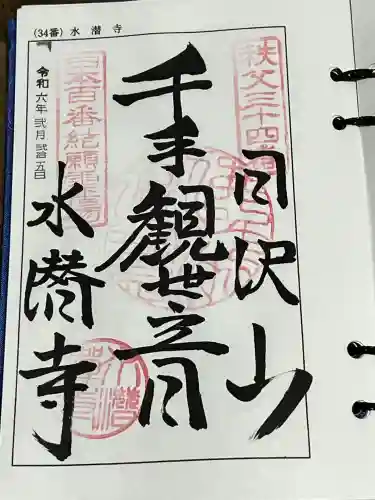 (34番) 水潜寺
秩父三十四番
日沢山
千手観世音
日本百番結願霊場
水潜寺
令和六年 弐月 弐拾五日